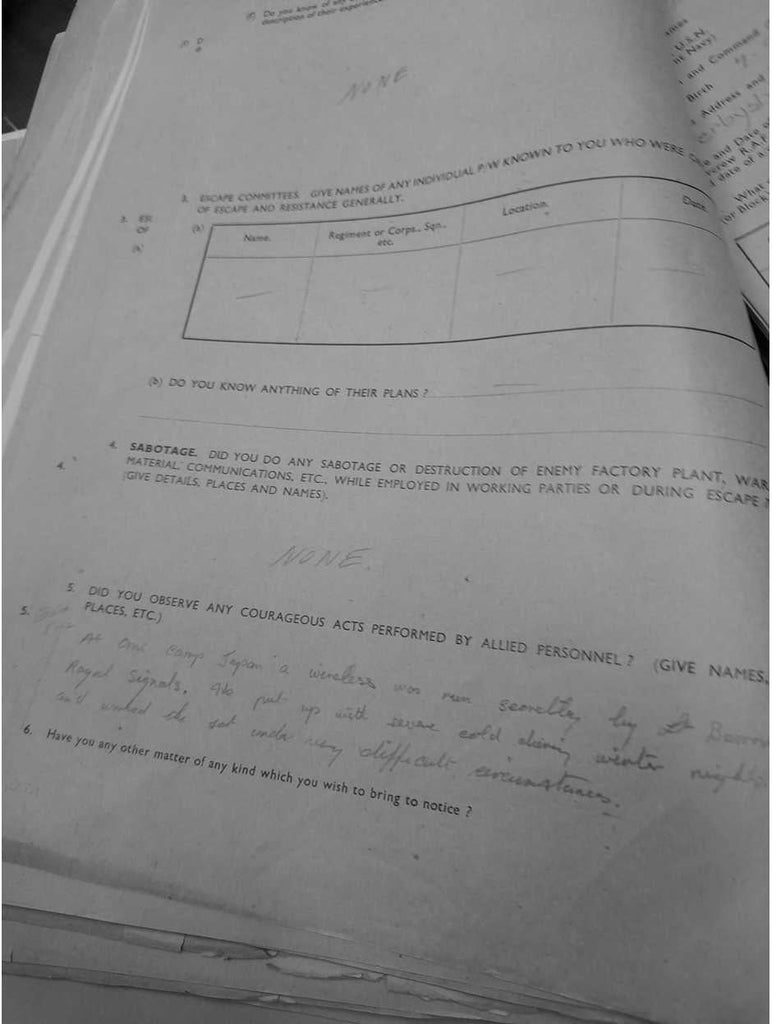 (f) Do you know of any
description of their experience
NONE
3. ESCAPE COMMITTEES. GIVE NAMES OF ANY INDIVIDUAL P/W KNOWN TO YOU WHO WERE
OF ESCAPE AND RESISTANCE GENERALLY.
(a) Name. Regiment or Corps., Sqn., etc. Location. Date.
(b) DO YOU KNOW ANYTHING OF THEIR PLANS ?
4. SABOTAGE. DID YOU DO ANY SABOTAGE OR DESTRUCTION OF ENEMY FACTORY PLANT, WAR
MATERIAL, COMMUNICATIONS, ETC., WHILE EMPLOYED IN WORKING PARTIES OR DURING ESCAPE ?
(GIVE DETAILS, PLACES AND NAMES).
NONE.
5. DID YOU OBSERVE ANY COURAGEOUS ACTS PERFORMED BY ALLIED PERSONNEL ? (GIVE NAMES,
PLACES, ETC.)
At Omi Camp Japan a wireless was run secretly by Lt
Royal Signals. He put up with severe cold during winter nights
and worked the set under very difficult circumstances.
6. Have you any other matter of any kind which you wish to bring to notice ?
3. ES
OF
(a)
4.
5.
U.S.N.
Navy)
and Command
Birth
Address and
and Date
R.A.F.
date of
What
or Block